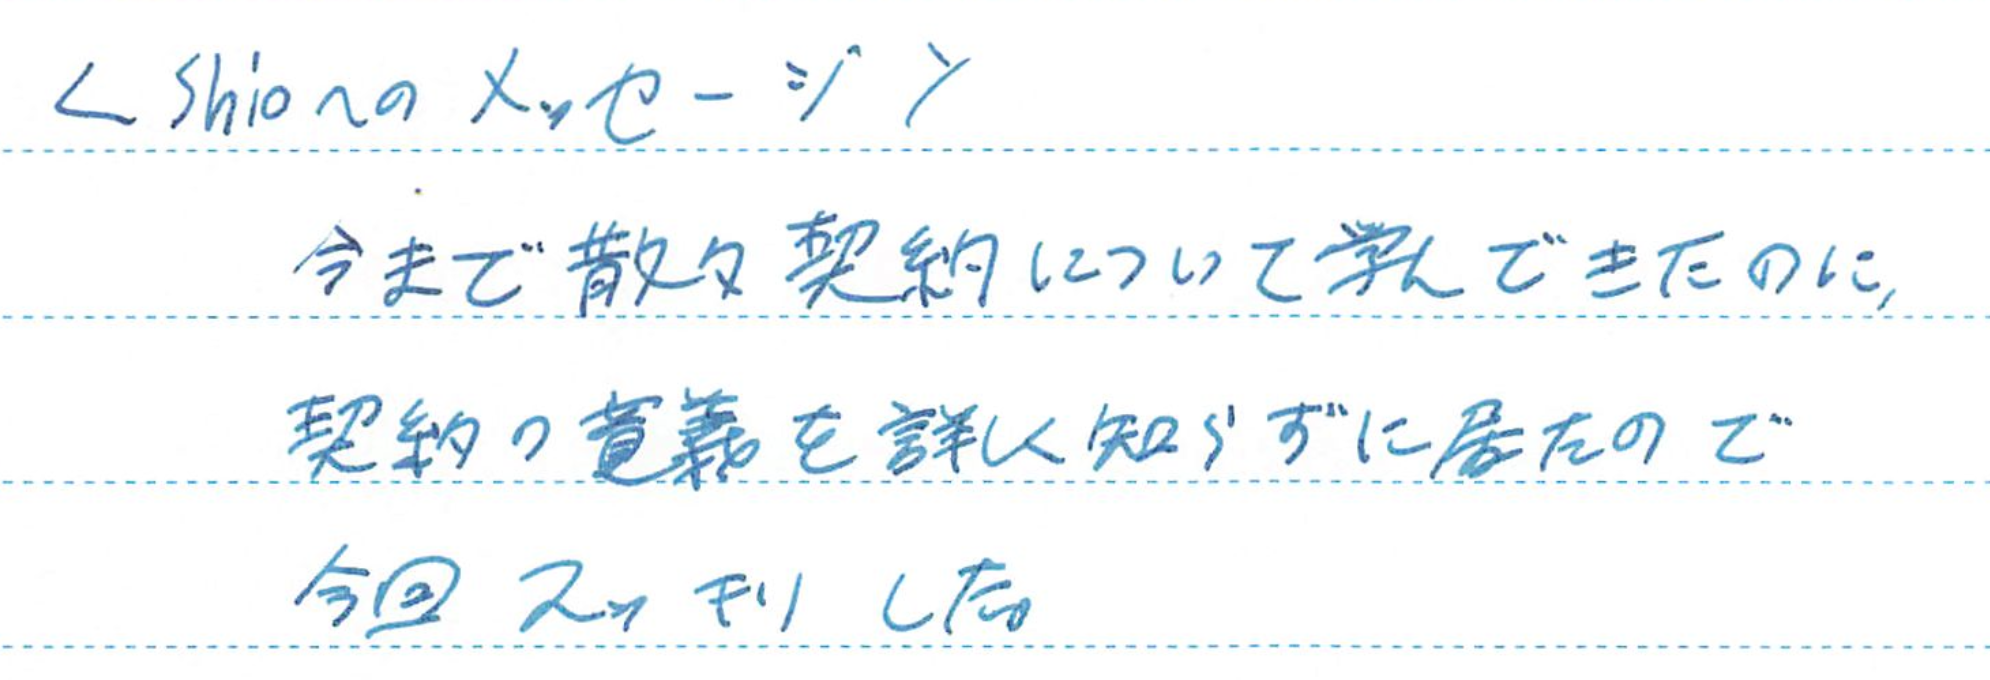 <Shioへのメッセージ>
今まで散々契約について学んできたのに,
契約の意義を詳しく知らずに居たので
今回スッキリした。